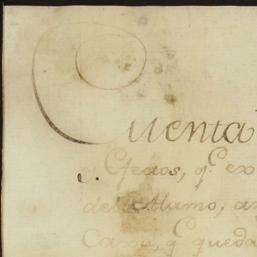 Cuenta
Efectos, q.^e ex
del Alamo, a
Caxa, q.^e queda